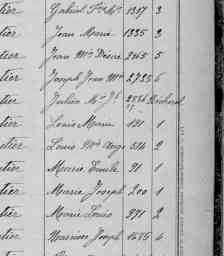 tier Gabriel Fcs Mie 1317 3
tier Jean Marie 1335 3
tier Jean Mie Désiré 2165 5
tier Joseph Jean Mie 2725 6
tier Julien Mie Jh 2586 Richard
tier Louis Marie 191 1
tier Louis Mie Ange 514 2
tier Marie Emile 91 1
tier Marie Joseph 200 1
tier Marie Louis 971 2
tier Narcisse Joseph 1685 4